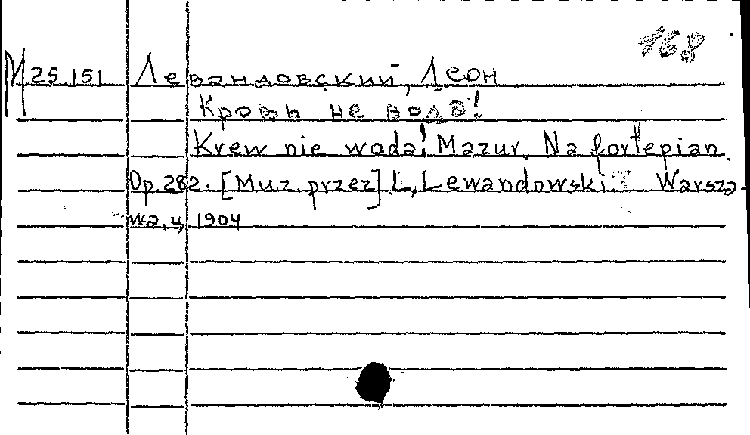 168
М 25.151 Левандовский, Леон
Кровь не вода!
Krew nie woda! Mazur. Na fortepian.
Op. 282. [Muz. przez] L. Lewandowski. Warsza-
wa, 1904